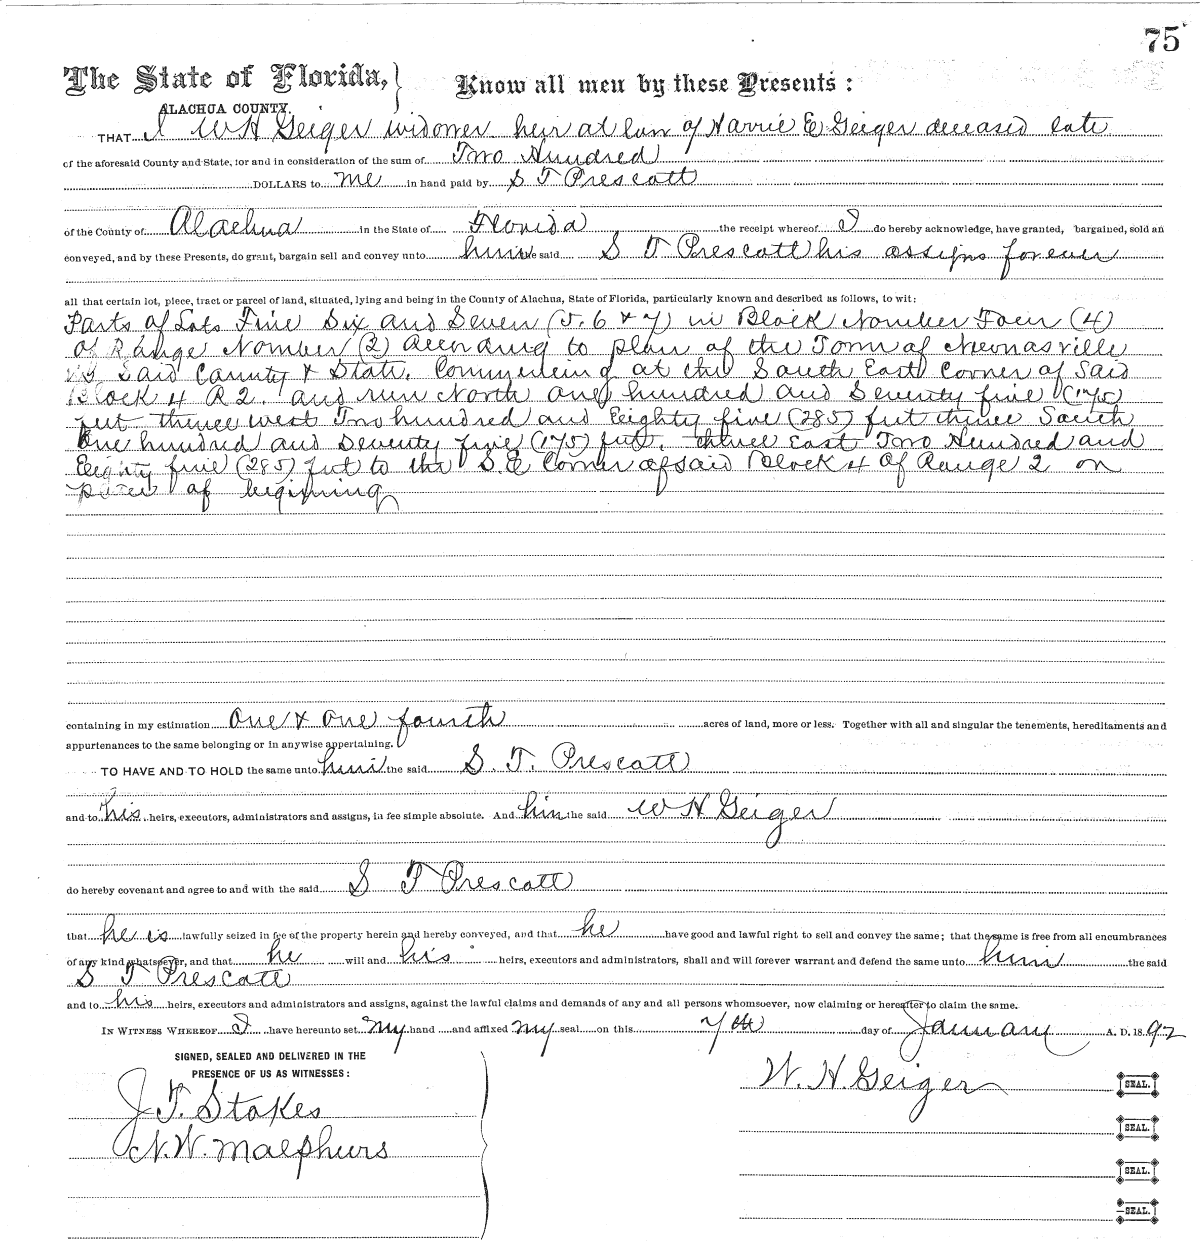 75
The State of Florida, Know all men by these Presents:
ALACHUA COUNTY.
THAT I W H Geiger widower heir at law of Harrie E Geiger deceased late
of the aforesaid County and State, for and in consideration of the sum of Two Hundred
DOLLARS to me in hand paid by S T Prescott
of the County of Alachua in the State of Florida the receipt whereof I do hereby acknowledge, have granted, bargained, sold an
conveyed, and by these Presents, do grant, bargain sell and convey unto him the said S T Prescott his assigns forever
all that certain lot, piece, tract or parcel of land, situated, lying and being in the County of Alachua, State of Florida, particularly known and described as follows, to wit:
Parts of Lots Five Six and Seven (5. 6 & 7) in Block Number Four (4)
of Range Number (2) according to plan of the Town of Newnansville
in Said County & State. Commencing at the South East Corner of Said
Block 4 R 2. and run North one hundred and Seventy five (175)
feet thence west Two hundred and Eighty five (285) feet thence South
One hundred and Seventy five (175) feet. thence East Two Hundred and
Eighty five (285) feet to the S.E Corner of said Block 4 of Range 2 or
place of beginning
containing in my estimation One & One fourth acres of land, more or less. Together with all and singular the tenements, hereditaments and
appurtenances to the same belonging or in anywise appertaining.
TO HAVE AND TO HOLD the same unto him the said S. T. Prescott
and to his heirs, executors, administrators and assigns, in fee simple absolute. And him the said W H Geiger
do hereby covenant and agree to and with the said S T Prescott
that he is lawfully seized in fee of the property herein and hereby conveyed, and that he have good and lawful right to sell and convey the same; that the same is free from all encumbrances
of any kind whatsoever, and that he will and his heirs, executors and administrators, shall and will forever warrant and defend the same unto him the said
S T Prescott
and to his heirs, executors and administrators and assigns, against the lawful claims and demands of any and all persons whomsoever, now claiming or hereafter to claim the same.
IN WITNESS WHEREOF I have hereunto set my hand and affixed my seal on this 7th day of January A. D. 1892
SIGNED, SEALED AND DELIVERED IN THE
PRESENCE OF US AS WITNESSES:
W. H. Geiger SEAL.
J. T. Stokes
SEAL.
N. W. Macphurs
SEAL.
SEAL.